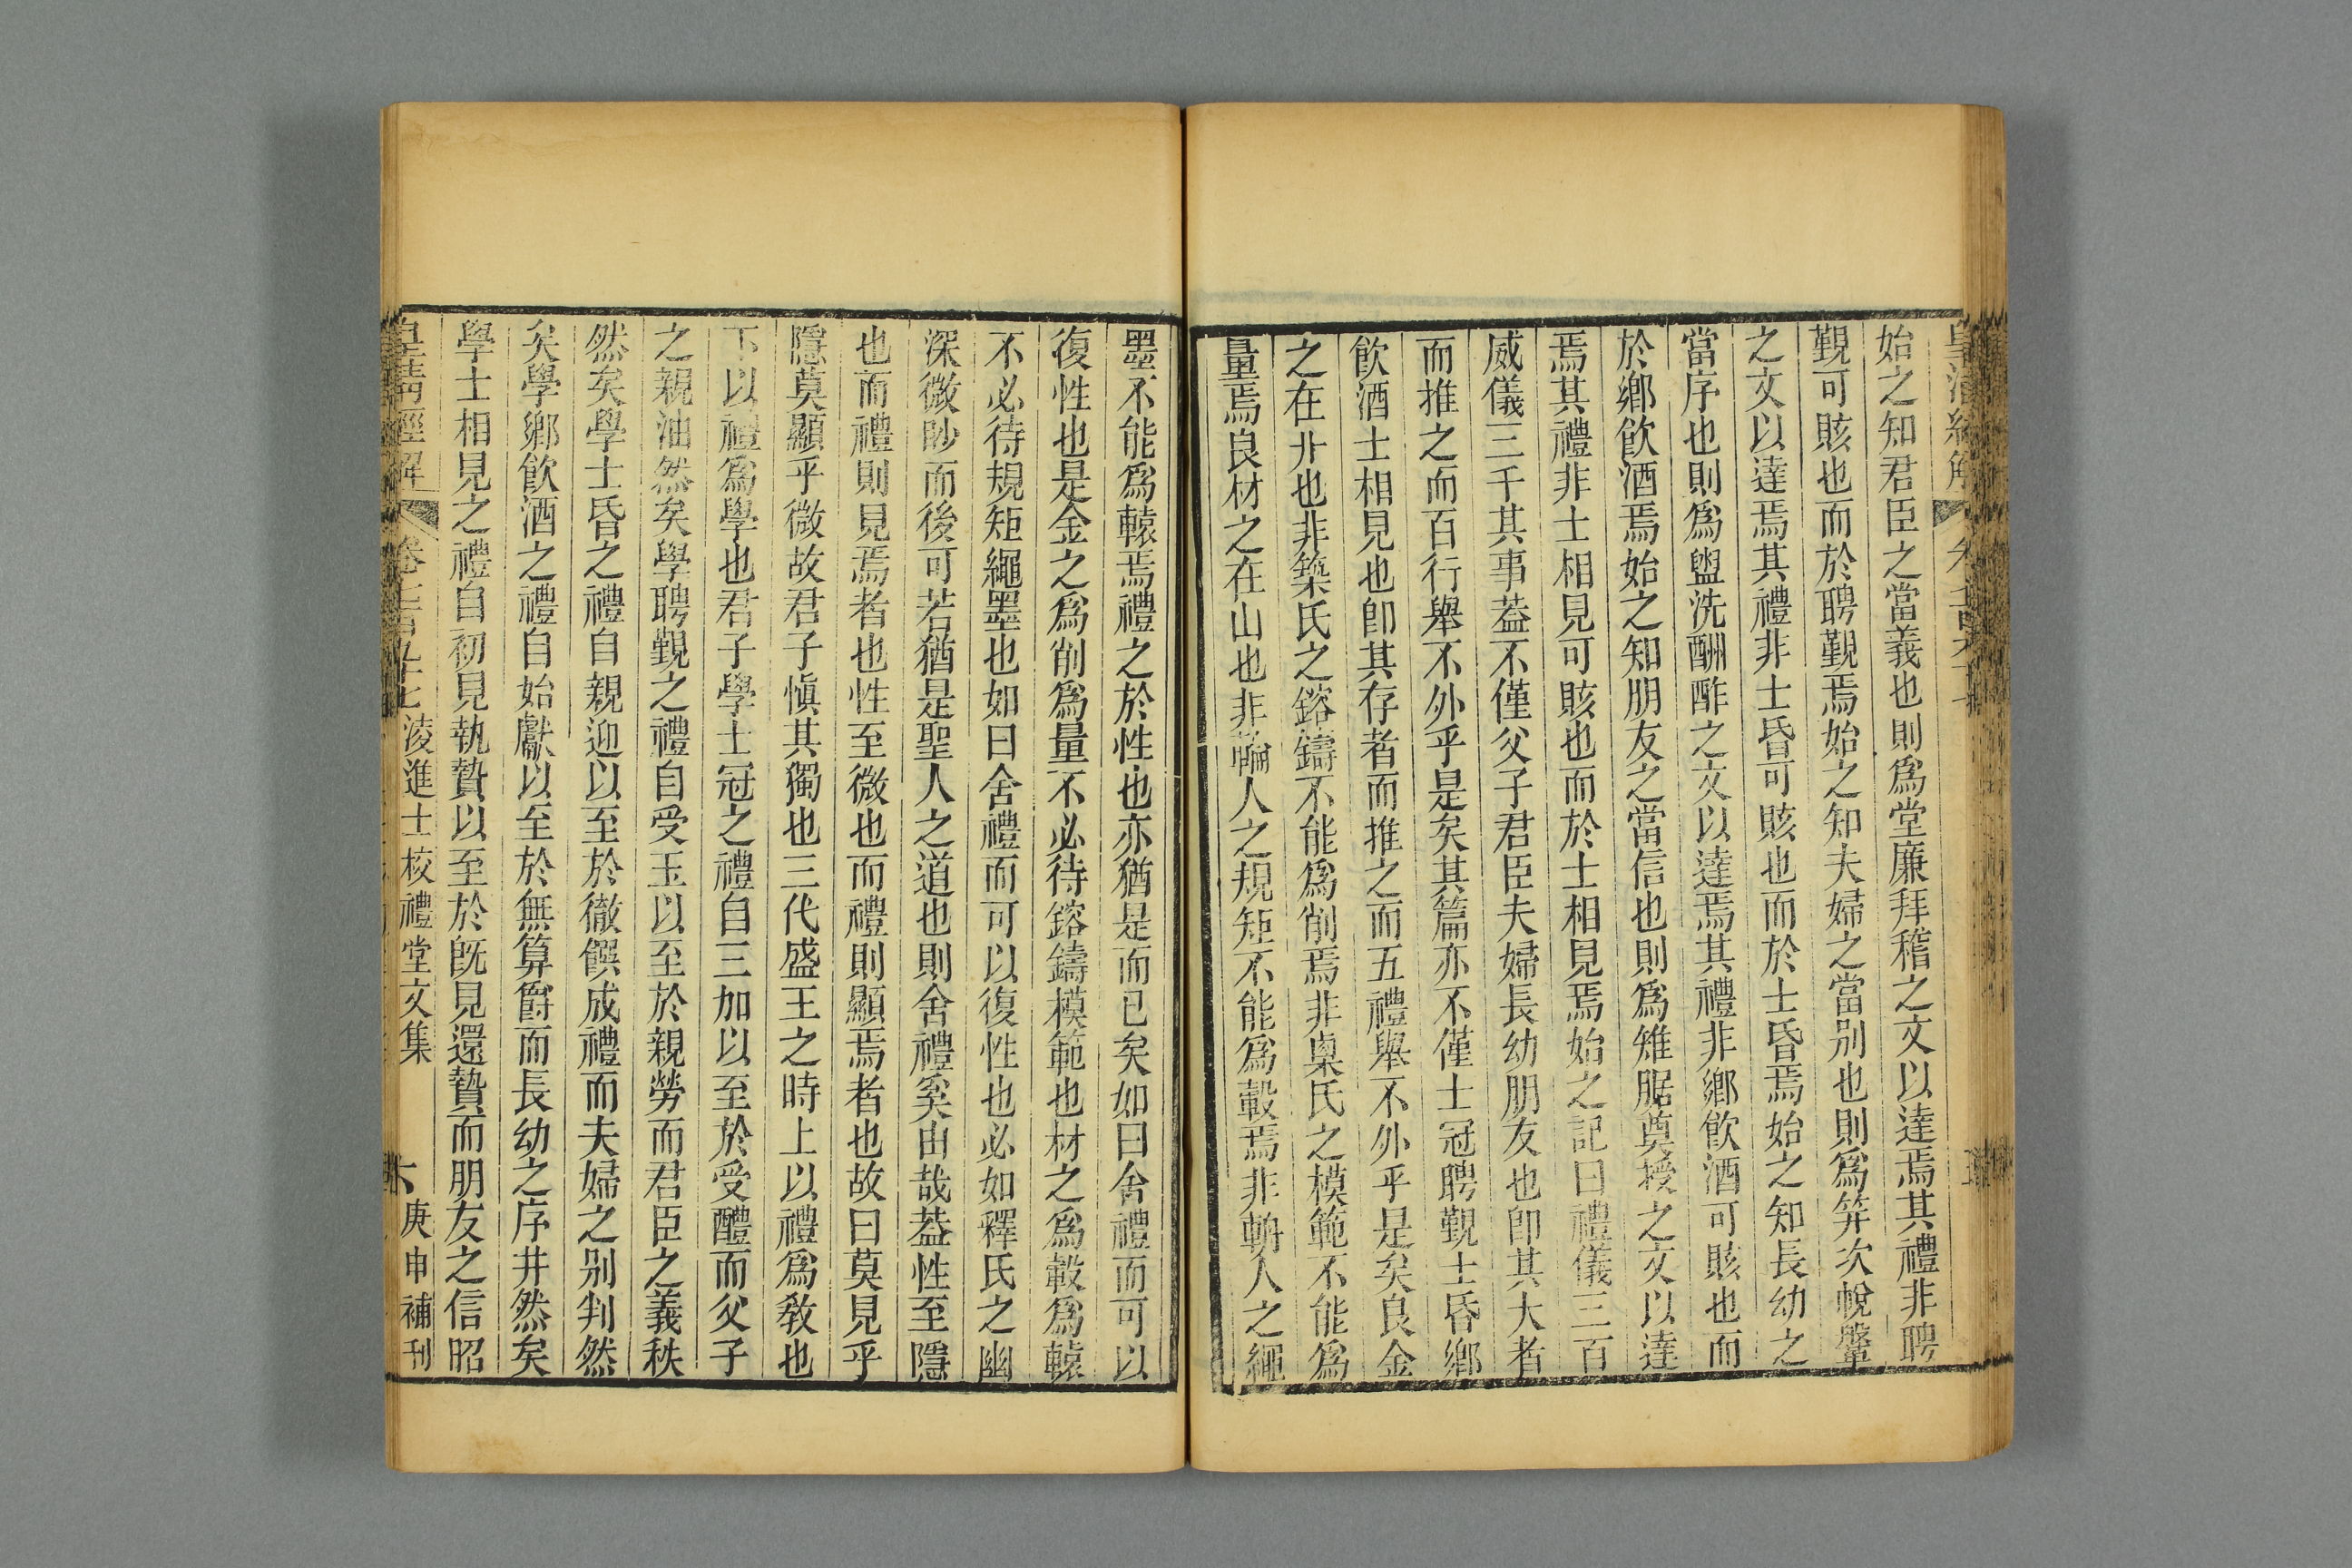 始之知君臣之當義也則爲堂廉拜稽之文以達焉其禮非聘
覲可賅也而於聘覲焉始之知夫婦之當别也則爲笄次帨鞶
之文以達焉其禮非士昏可賅也而於士昏焉始之知長幼之
當序也則爲盥洗酬酢之文以達焉其禮非鄉飮酒可賅也而
於鄉飮酒焉始之知朋友之當信也則爲雉腒奠授之文以達
焉其禮非士相見可賅也而於士相見焉始之記曰禮儀三百
威儀三千其事葢不僅父子君臣夫婦長幼朋友也卽其大者
而推之而百行舉不外乎是矣其篇亦不僅士冠聘覲士昏鄉
飮酒士相見也卽其存者而推之而五禮舉不外乎是矣良金
之在丱也非築氏之鎔鑄不能爲削焉非㮚氏之模範不能爲
量焉良材之在山也非輪人之規矩不能爲轂焉非輈人之繩
墨不能爲轅焉禮之於性也亦猶是而已矣如曰舍禮而可以
復性也是金之爲削爲量不必待鎔鑄模範也材之爲轂爲轅
不必待規矩繩墨也如曰舍禮而可以復性也必如釋氏之幽
深微眇而後可若猶是聖人之道也則舍禮奚由哉葢性至隱
也而禮則見焉者也性至微也而禮則顯焉者也故曰莫見乎
隱莫顯乎微故君子愼其獨也三代盛王之時上以禮爲敎也
下以禮爲學也君子學士冠之禮自三加以至於受醴而父子
之親油然矣學聘覲之禮自受玉以至於親勞而君臣之義秩
然矣學士昏之禮自親迎以至於徹饌成禮而夫婦之别判然
矣學鄉飮酒之禮自始獻以至於無算爵而長幼之序井然矣
學士相見之禮自初見執贄以至於旣見還贄而朋友之信昭
皇淸經解 卷 淩進士校禮堂文集 六 庚申補刊